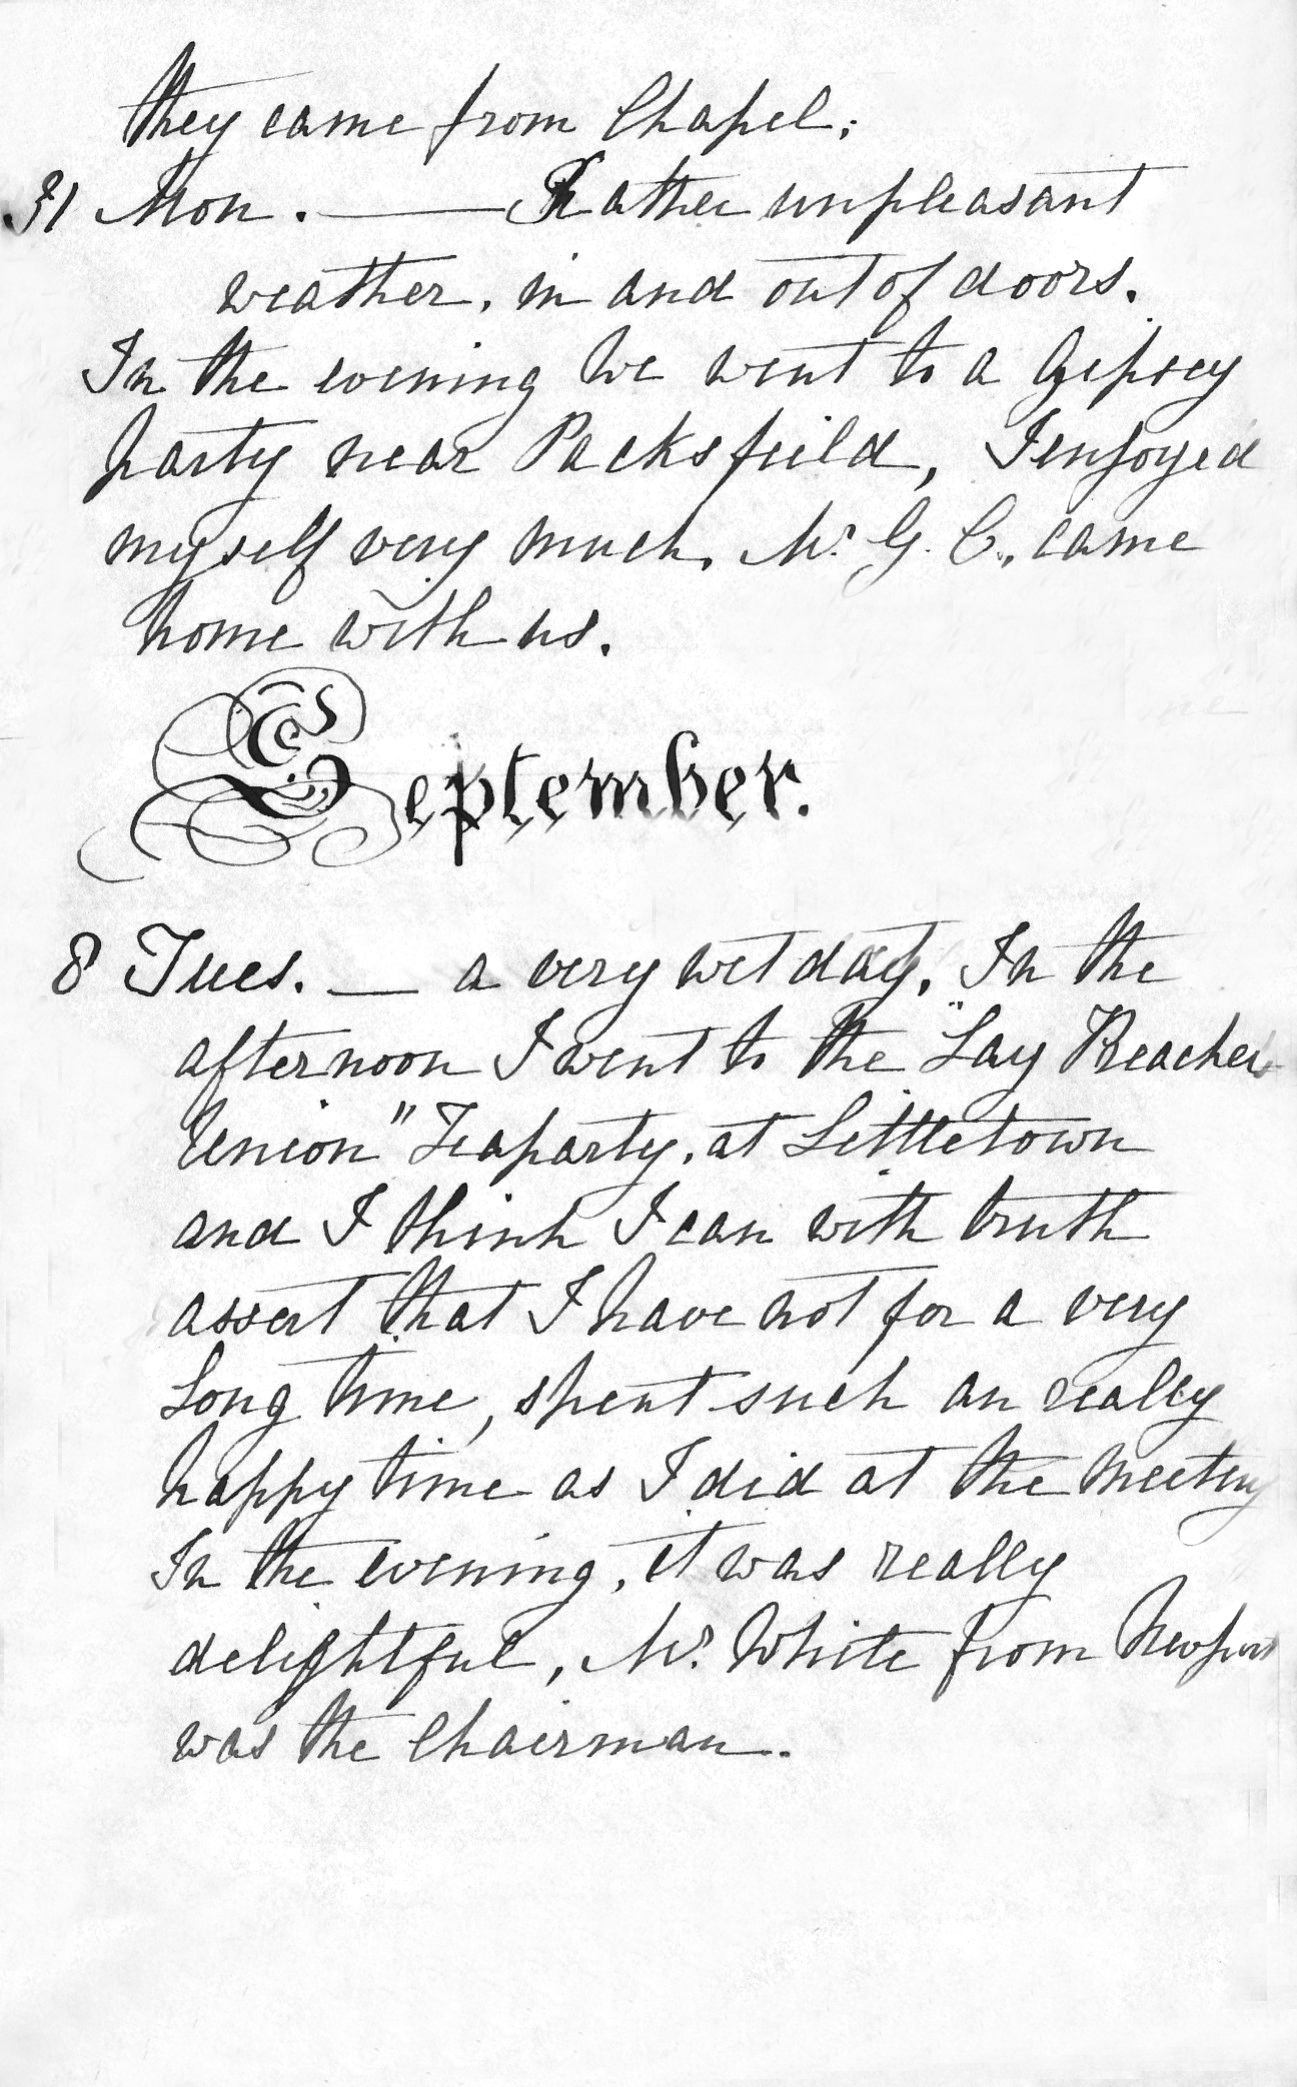 they came from Chapel;
31 Mon. — Rather unpleasant
weather, in and out of doors.
In the evening we went to a Gipsey
party near Packsfeild, I enjoyed
myself very much. Mr. G. C. came
home with us.
September.
8 Tues. — a very wet day. In the
afternoon I went to the "Lay Preacher
Union" Teaparty, at Littletown
and I think I can with truth
assert that I have not for a very
Long time, spent such an really
happy time as I did at the Meeting
In the evening, it was really
delightful, Mr. White from Newport
was the Chairman.